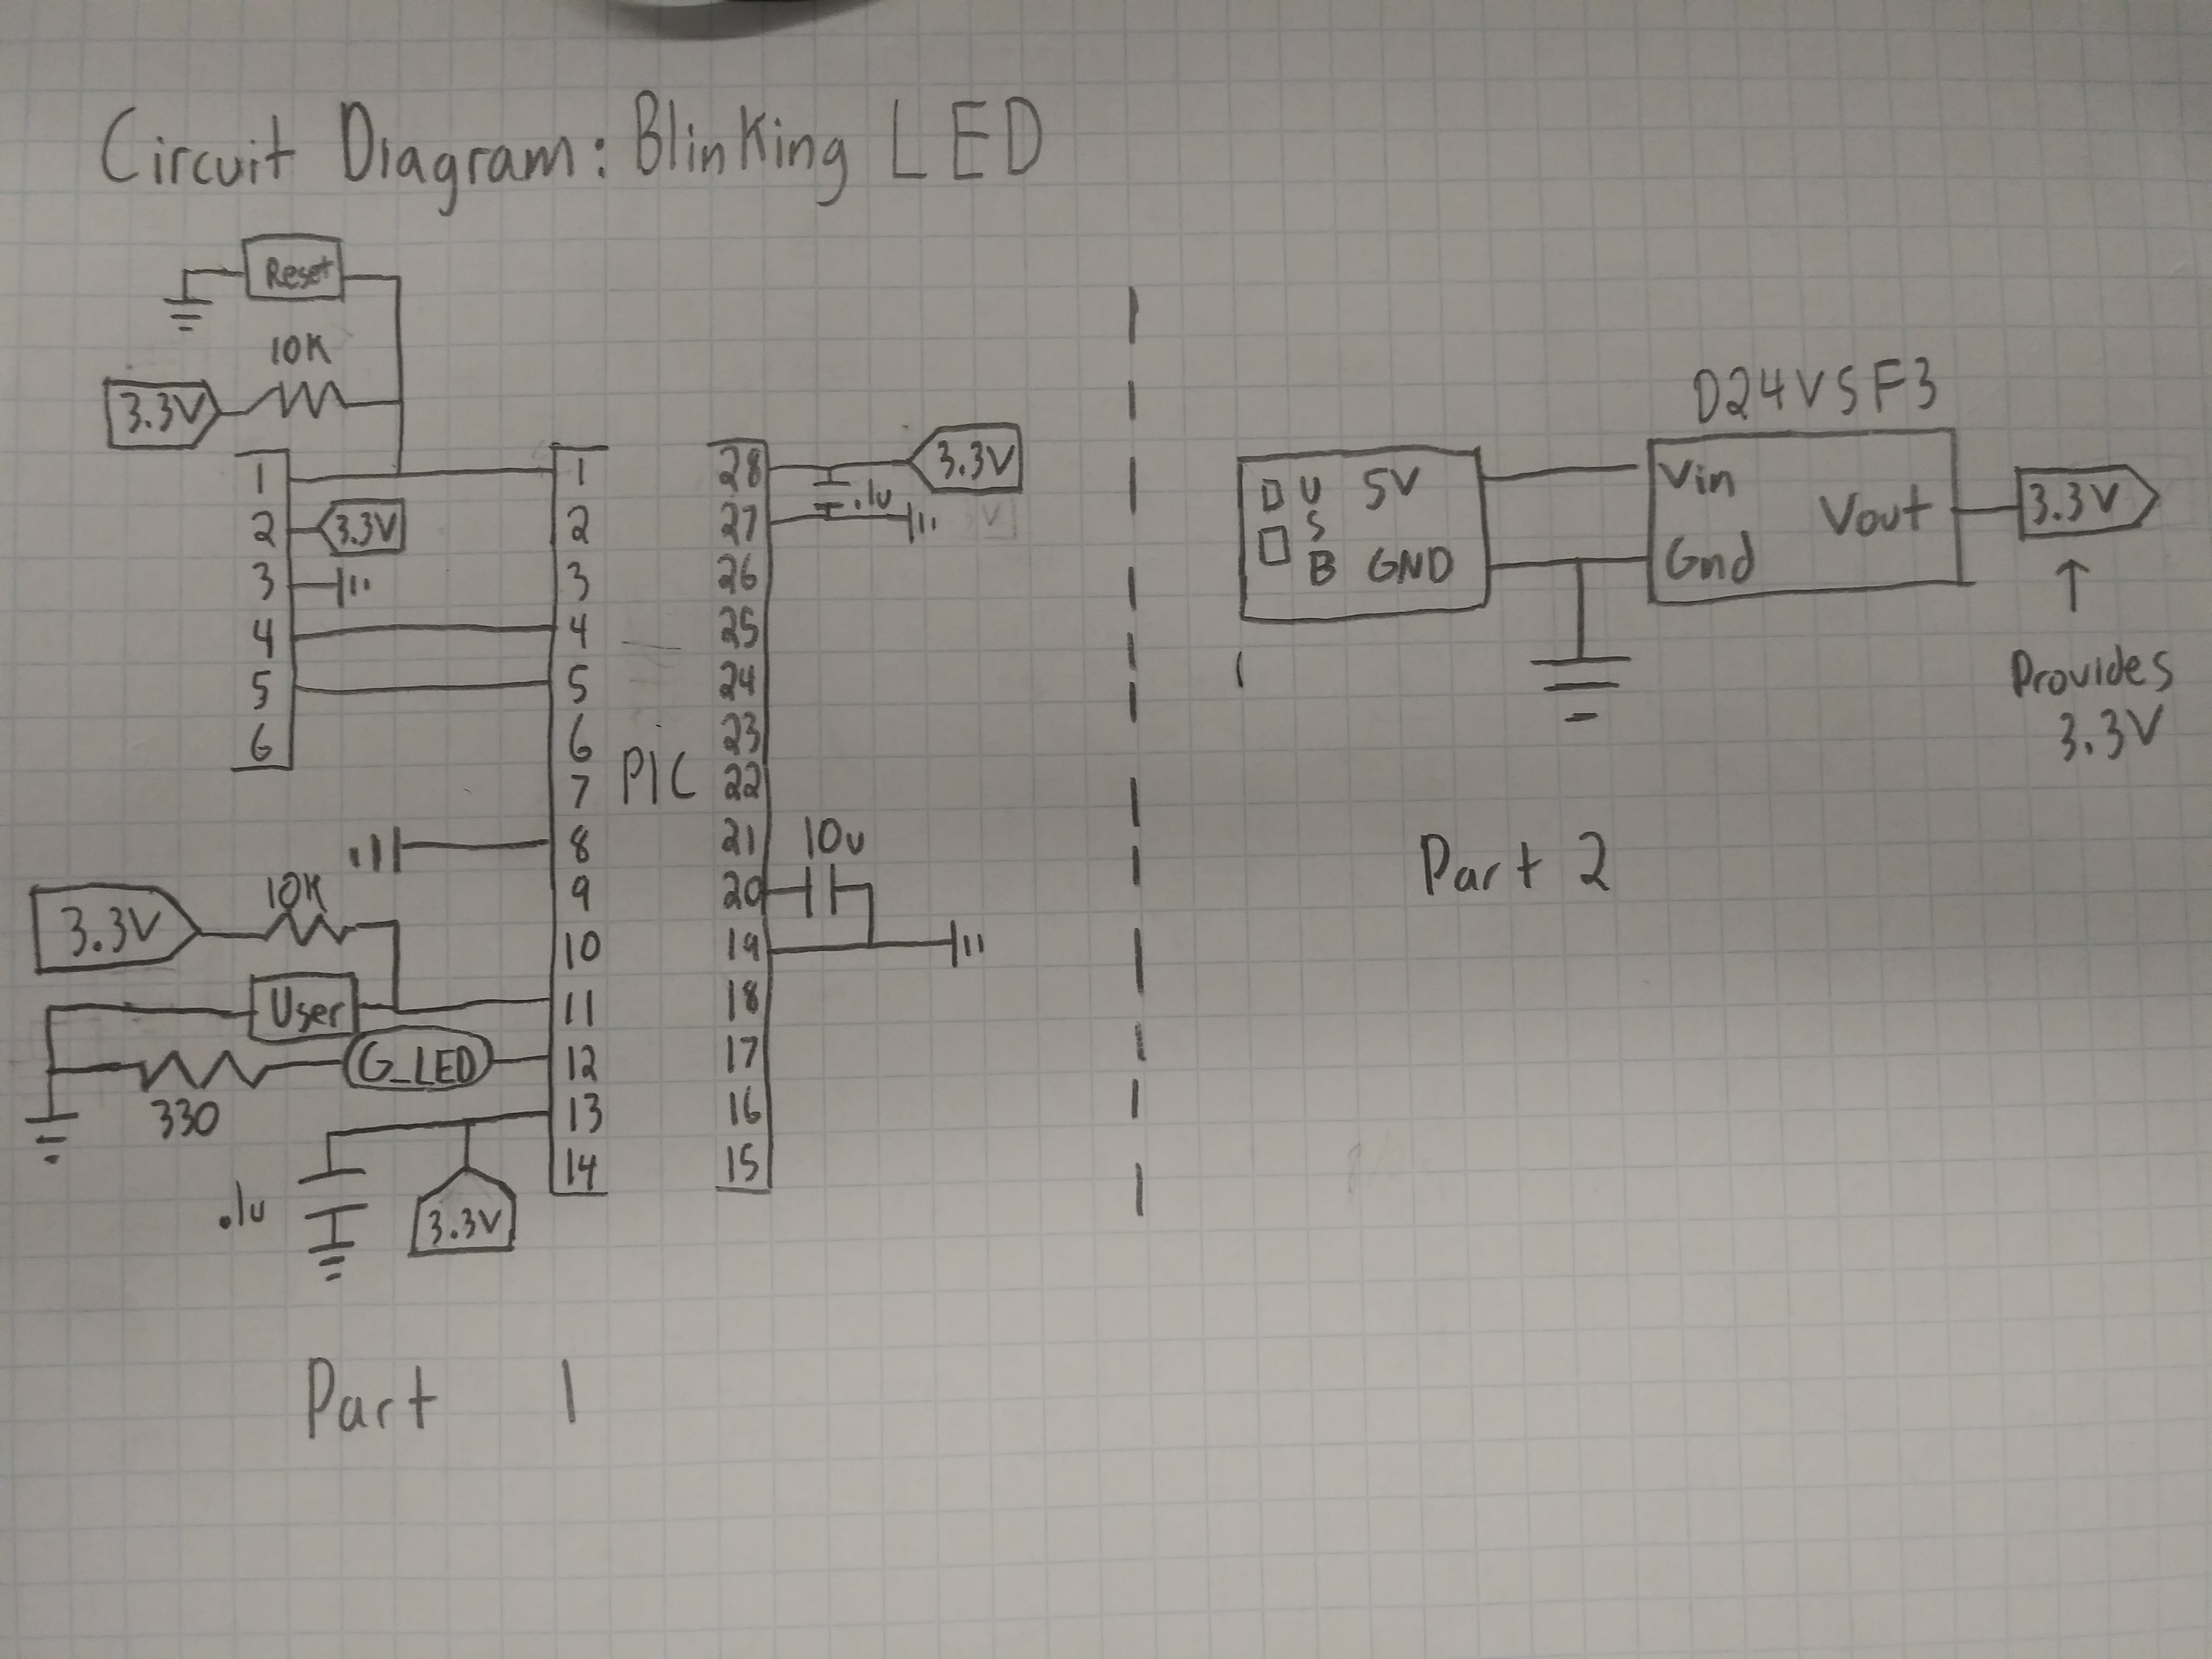 Circuit Diagram: Blinking LED
Reset
10K
3.3V
1
2
3
4
5
6
3.3V
3.3V
10K
User
330
G_LED
.1u
3.3V
1
2
3
4
5
6
7
8
9
10
11
12
13
14
PIC
28
27
26
25
24
23
22
21
20
19
18
17
16
15
.1u
3.3V
10u
Part 1
USB
5V
GND
D24V5F3
Vin
Gnd
Vout
3.3V
↑
Provides
3.3V
Part 2